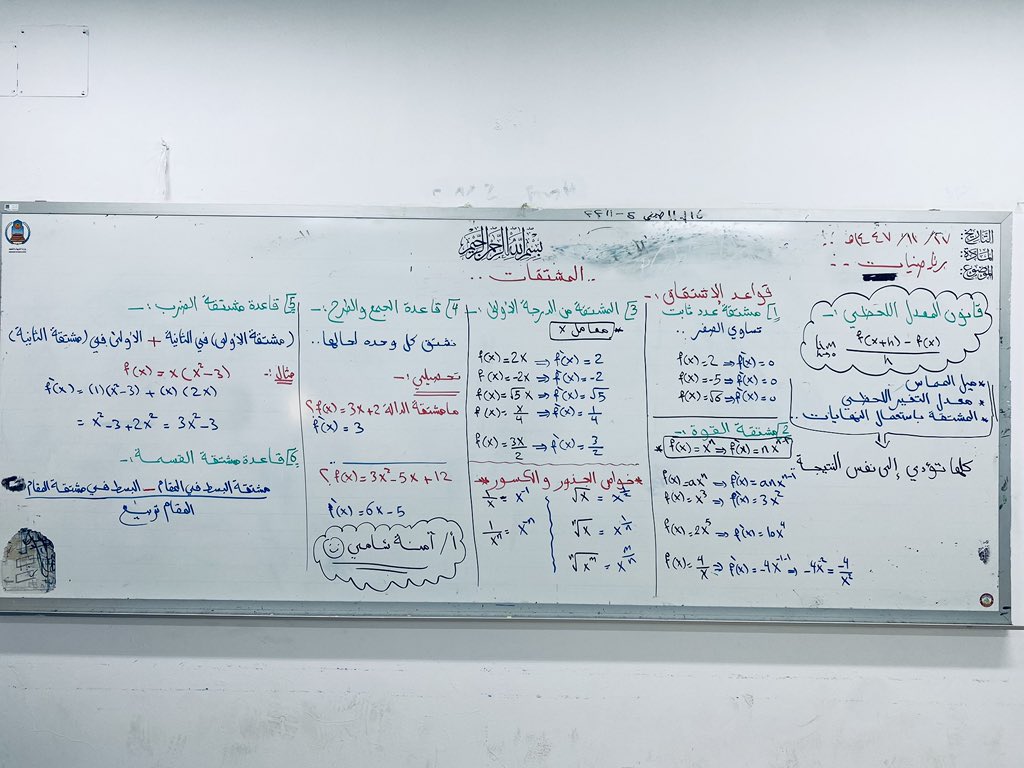 بسم الله الرحمن الرحيم
التاريخ: ٢٧/ ١١/ ١٤٤٧هـ
المادة: رياضيات
الموضوع:
المشتقات..
قانون المعدل اللحظي :-
lim h→0 f(x+h) - f(x) / h
* ميل المماس
* معدل التغير اللحظي
* المشتقة باستعمال النهايات..
⇓
كلها تؤدي إلى نفس النتيجة
قواعد الإشتقاق :-
1 مشتقة عدد ثابت
تساوي الصفر..
f(x)=2 ⇒ f`(x)=0
f(x)=-5 ⇒ f`(x)=0
f(x)=√6 ⇒ f`(x)=0
2 مشتقة القوة :-
* f(x)=xⁿ ⇒ f`(x)=nxⁿ⁻¹
f(x)=axⁿ ⇒ f`(x)=anxⁿ⁻¹
f(x)=x³ ⇒ f`(x)=3x²
f(x)=2x⁵ ⇒ f`(x)=10x⁴
f(x)=4/x ⇒ f`(x)=-4x⁻¹⁻¹ ⇒ -4x⁻² = -4/x²
3 المشتقة من الدرجة الأولى :-
* معامل x
f(x)=2x ⇒ f`(x)=2
f(x)=-2x ⇒ f`(x)=-2
f(x)=√5 x ⇒ f`(x)=√5
f(x)=x/4 ⇒ f`(x)=1/4
f(x)=3x/2 ⇒ f`(x)=3/2
* خواص الجذور والكسور *
√x = x^(1/2)
ⁿ√x = x^(1/n)
ⁿ√xᵐ = x^(m/n)
1/x = x⁻¹
1/xⁿ = x⁻ⁿ
4 قاعدة الجمع والطرح :-
نشتق كل وحده لحالها..
تحصيلي :-
ما مشتقة الدالة f(x)=3x+2 ؟
f`(x)=3
f(x)=3x²-5x+12 ؟
f`(x)=6x-5
أ/ آمنة شامي
5 قاعدة مشتقة الضرب :-
(مشتقة الأولى) في الثانية + الأولى في (مشتقة الثانية)
مثال :- f(x)=x(x²-3)
f`(x)=(1)(x²-3)+(x)(2x)
= x²-3+2x² = 3x²-3
6 قاعدة مشتقة القسمة :-
مشتقة البسط في المقام - البسط في مشتقة المقام
المقام تربيع